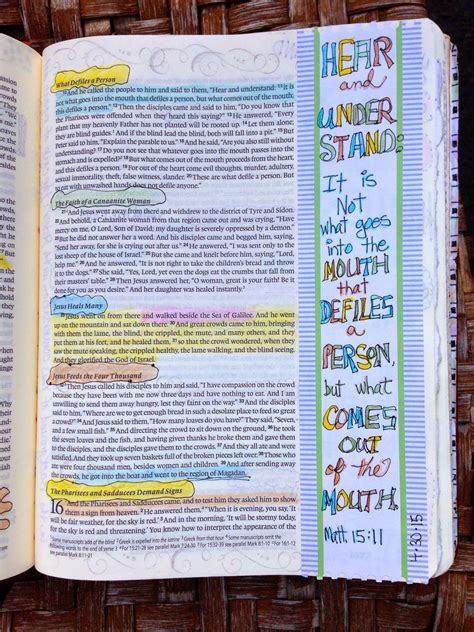 What Defiles a Person
10And he called the people to him and said to them, "Hear and understand: 11it is
not what goes into the mouth that defiles a person, but what comes out of the mouth;
this defiles a person." 12Then the disciples came and said to him, "Do you know that
the Pharisees were offended when they heard this saying?" 13He answered, "Every
plant that my heavenly Father has not planted will be rooted up. 14Let them alone;
they are blind guides. And if the blind lead the blind, both will fall into a pit." 15But
Peter said to him, "Explain the parable to us." 16And he said, "Are you also still without
understanding? 17Do you not see that whatever goes into the mouth passes into the
stomach and is expelled? 18But what comes out of the mouth proceeds from the heart,
and this defiles a person. 19For out of the heart come evil thoughts, murder, adultery,
sexual immorality, theft, false witness, slander. 20These are what defile a person. But
to eat with unwashed hands does not defile anyone."
The Faith of a Canaanite Woman
21And Jesus went away from there and withdrew to the district of Tyre and Sidon.
22And behold, a Canaanite woman from that region came out and was crying, "Have
mercy on me, O Lord, Son of David; my daughter is severely oppressed by a demon."
23But he did not answer her a word. And his disciples came and begged him, saying,
"Send her away, for she is crying out after us." 24He answered, "I was sent only to the
lost sheep of the house of Israel." 25But she came and knelt before him, saying, "Lord,
help me." 26And he answered, "It is not right to take the children's bread and throw
it to the dogs." 27She said, "Yes, Lord, yet even the dogs eat the crumbs that fall from
their masters' table." 28Then Jesus answered her, "O woman, great is your faith! Be it
done for you as you desire." And her daughter was healed instantly.
Jesus Heals Many
29Jesus went on from there and walked beside the Sea of Galilee. And he went
up on the mountain and sat down there. 30And great crowds came to him, bringing
with them the lame, the blind, the crippled, the mute, and many others, and they
put them at his feet, and he healed them, 31so that the crowd wondered, when they
saw the mute speaking, the crippled healthy, the lame walking, and the blind seeing.
And they glorified the God of Israel.
Jesus Feeds the Four Thousand
32Then Jesus called his disciples to him and said, "I have compassion on the crowd
because they have been with me now three days and have nothing to eat. And I am
unwilling to send them away hungry, lest they faint on the way." 33And the disciples
said to him, "Where are we to get enough bread in such a desolate place to feed so great
a crowd?" 34And Jesus said to them, "How many loaves do you have?" They said, "Seven,
and a few small fish." 35And directing the crowd to sit down on the ground, 36he took
the seven loaves and the fish, and having given thanks he broke them and gave them
to the disciples, and the disciples gave them to the crowds. 37And they all ate and were
satisfied. And they took up seven baskets full of the broken pieces left over. 38Those
who ate were four thousand men, besides women and children. 39And after sending away
the crowds, he got into the boat and went to the region of Magadan.
The Pharisees and Sadducees Demand Signs
16 And the Pharisees and Sadducees came, and to test him they asked him to show
them a sign from heaven. 2He answered them, "When it is evening, you say, 'It
will be fair weather, for the sky is red.' 3And in the morning, 'It will be stormy today,
for the sky is red and threatening.' You know how to interpret the appearance of the
HEAR
and
UNDER
STAND:
It is
Not
what goes
into the
MOUTH
that
DEFILES
a
PERSON,
but what
COMES
OUT
of the
MOUTH.
Matt. 15:11
4·20·15